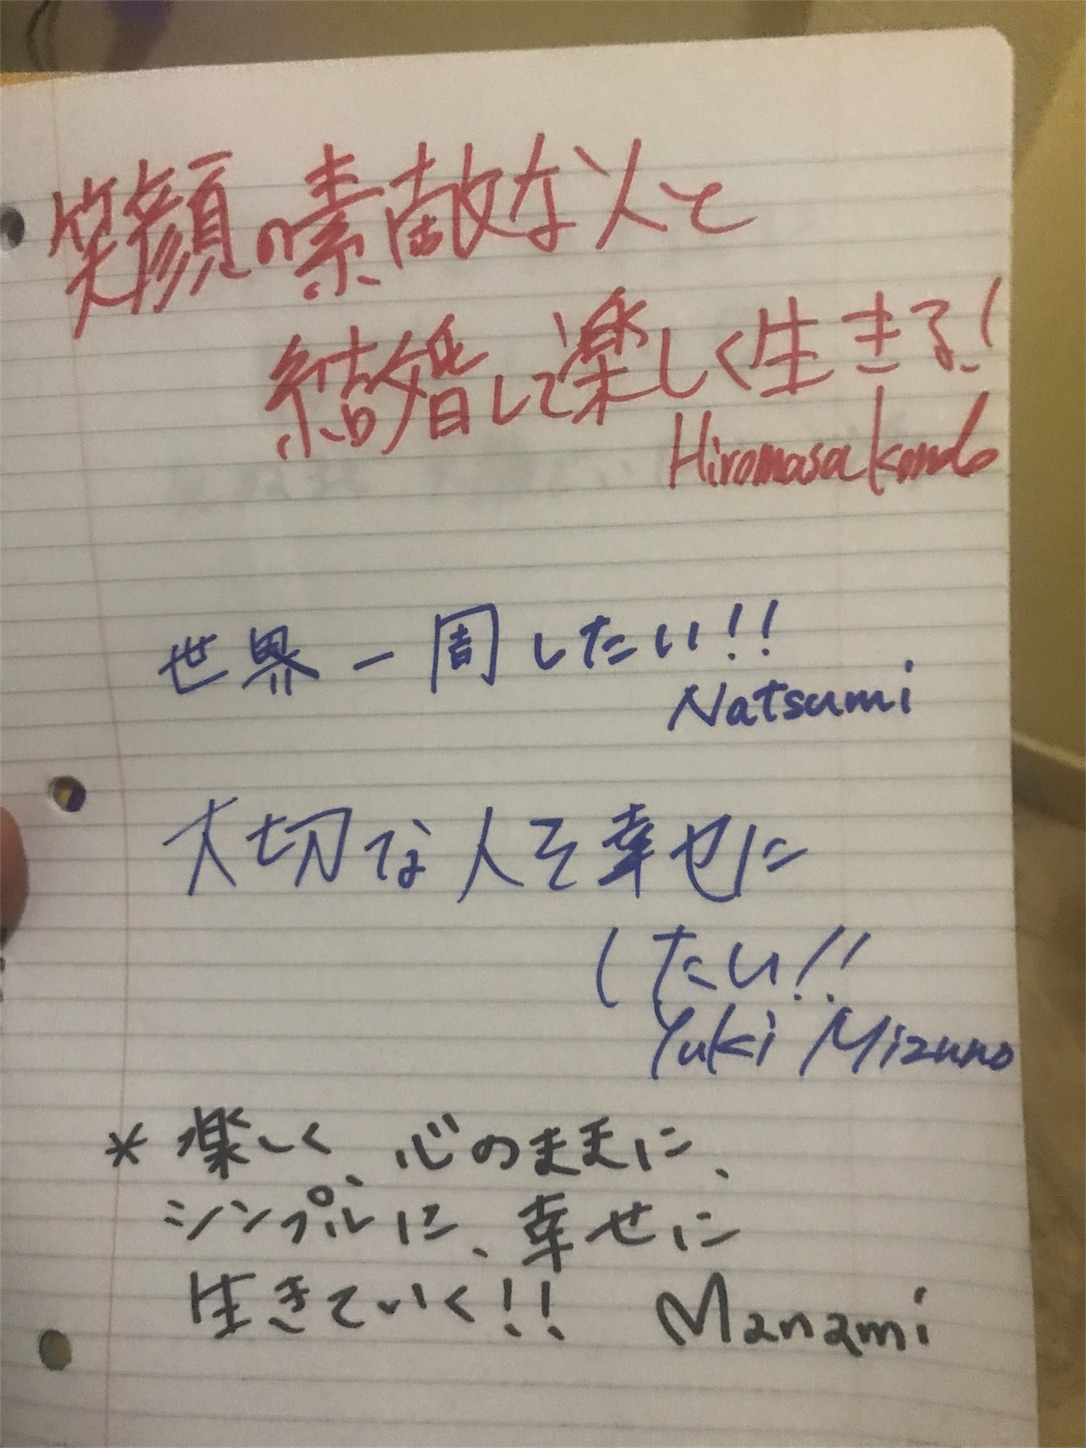 笑顔の素敵な人と
結婚して楽しく生きる!
Hiromasa Kondo
世界一周したい!!
Natsumi
大切な人を幸せに
したい!!
Yuki Mizuno
* 楽しく、心のままに、
シンプルに、幸せに
生きていく!! Manami